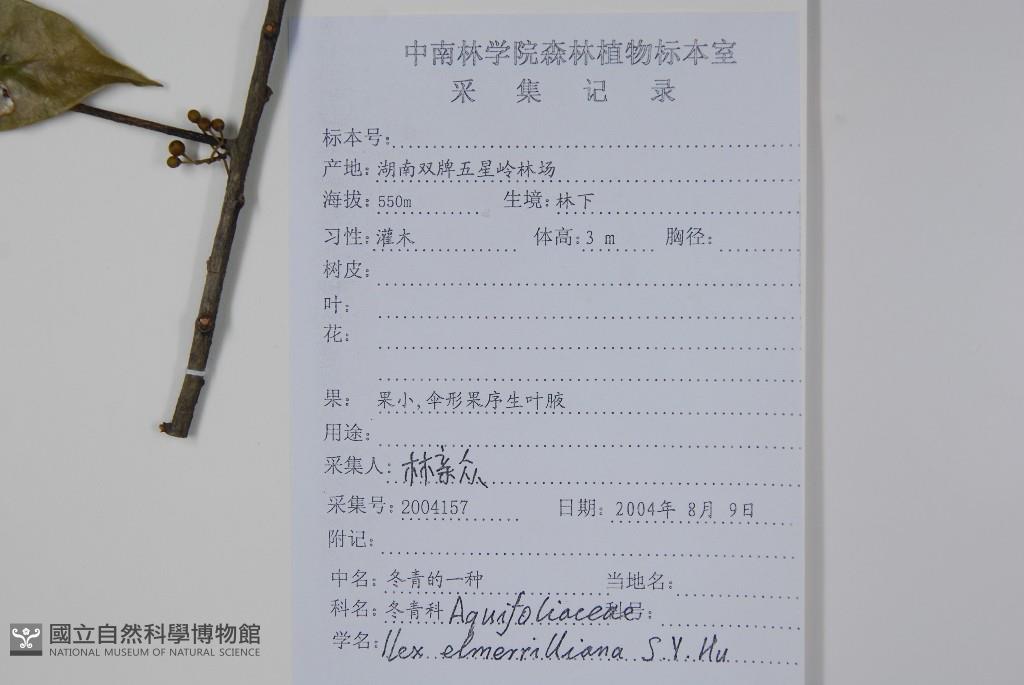 中南林学院森林植物标本室
采集记录
标本号:
产地: 湖南双牌五星岭林场
海拔: 550m 生境: 林下
习性: 灌木 体高: 3 m 胸径:
树皮:
叶:
花:
果: 果小,伞形果序生叶腋
用途:
采集人: 林亲众
采集号: 2004157 日期: 2004年 8月 9日
附记:
中名: 冬青的一种 当地名:
科名: 冬青科 Aquifoliaceae 科号:
学名: Ilex elmerrilliana S.Y.Hu
國立自然科學博物館
NATIONAL MUSEUM OF NATURAL SCIENCE